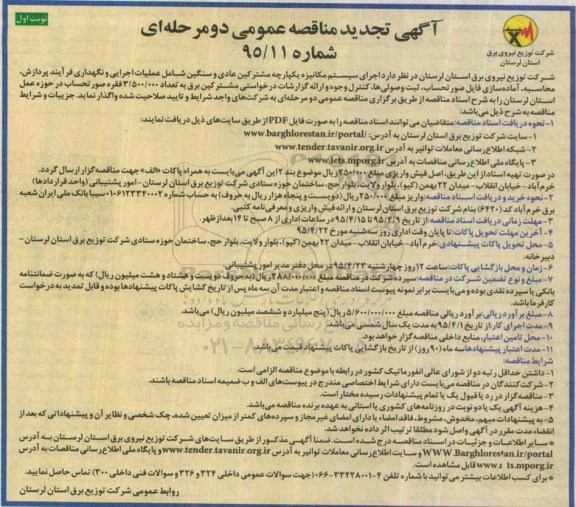 نوبت اول
آگهی تجدید مناقصه عمومی دو مرحله‌ای
شماره ۹۵/۱۱
شرکت توزیع نیروی برق
استان لرستان
شرکت توزیع نیروی برق استان لرستان در نظر دارد اجرای سیستم مکانیزه یکپارچه مشترکین عادی و سنگین شامل عملیات اجرایی و نگهداری فرآیند پردازش،
محاسبه، آماده‌سازی فایل صورتحساب، ثبت وصولی‌ها، کنترل وجوه و ارائه گزارشات درخواستی مشترکین برق به تعداد ۳/۵۰۰/۰۰۰ فقره صورتحساب در حوزه عمل
استان لرستان را به شرح اسناد مناقصه از طریق برگزاری مناقصه عمومی دو مرحله‌ای به شرکت‌های واجد شرایط و تایید صلاحیت شده واگذار نماید. جزییات و شرایط
مناقصه به شرح ذیل می‌باشد:
۱- نحوه دریافت اسناد مناقصه: متقاضیان می‌توانند اسناد مناقصه را به صورت فایل PDF از طریق سایت‌های ذیل دریافت نمایند:
۱- سایت شرکت توزیع برق استان لرستان به آدرس: www.barghlorestan.ir/portal/
۲- شبکه اطلاع رسانی معاملات توانیر به آدرس www.tender.tavanir.org.ir
۳- پایگاه ملی اطلاع رسانی مناقصات به آدرس www.iets.mporg.ir
در صورت تهیه اسناد از این طریق، اصل فیش واریزی مبلغ ۲۵۰/۰۰۰ ریال موضوع بند ۲ این آگهی می‌بایست به همراه پاکات «الف» جهت مناقصه‌گزار ارسال گردد.
خرم‌آباد - خیابان انقلاب - میدان ۲۲ بهمن (کیو)، بلوار ولایت، بلوار حج، ساختمان حوزه ستادی شرکت توزیع برق استان لرستان - امور پشتیبانی (واحد قراردادها)
۲- نحوه خرید و دریافت اسناد مناقصه: واریز مبلغ ۲۵۰/۰۰۰ ریال (دویست و پنجاه هزار ریال به حروف) به حساب شماره ۰۱۰۶۱۲۳۳۴۰۰۲ سیبا بانک ملی ایران شعبه
برق خرم‌آباد کد (۶۴۲۰) بنام شرکت توزیع برق استان لرستان و ارائه فیش واریزی و معرفی‌نامه کتبی
۳- مهلت زمانی دریافت اسناد مناقصه: از تاریخ ۹۵/۴/۹ تا ۹۵/۴/۱۵ در ساعات اداری از ۸ صبح تا ۱۴ بعدازظهر.
۴- آخرین مهلت تحویل پاکات: تا پایان وقت اداری روز سه‌شنبه مورخ ۹۵/۴/۲۲
۵- محل تحویل پاکات پیشنهادی: خرم‌آباد - خیابان انقلاب - میدان ۲۲ بهمن (کیو)، بلوار ولایت، بلوار حج، ساختمان حوزه ستادی شرکت توزیع برق استان لرستان -
دبیرخانه.
۶- زمان و محل بازگشایی پاکات: ساعت ۱۲ روز چهارشنبه ۹۵/۴/۲۳ در محل دفتر مدیر امور پشتیبانی.
۷- مبلغ و نوع تضمین شرکت در مناقصه: سپرده شرکت در مناقصه مبلغ ۲۸۸/۰۰۰/۰۰۰ ریال (به حروف دویست و هشتاد و هشت میلیون ریال) که به صورت ضمانتنامه
بانکی یا سپرده نقدی بوده و می‌بایست برابر نمونه پیوست اسناد مناقصه و اعتبار مدت آن سه ماه پس از تاریخ گشایش پاکات پیشنهادها بوده و قابل تمدید به درخواست
کارفرما باشد.
۸- مبلغ برآورد ریالی: برآورد ریالی مناقصه مبلغ ۵/۶۰۰/۰۰۰/۰۰۰ ریال (پنج میلیارد و ششصد میلیون ریال) می‌باشد.
۹- مدت اجرای کار: از تاریخ ۹۵/۴/۱ به مدت یک سال شمسی می‌باشد
۱۰- محل تامین اعتبار: منابع داخلی مناقصه‌گزار خواهد بود.
۱۱- مدت اعتبار پیشنهادها: سه ماه (۹۰ روز) از تاریخ بازگشایی پاکات پیشنهاد قیمت می‌باشد
شرایط مناقصه:
۱- داشتن حداقل رتبه دو از شورای عالی انفورماتیک کشور در رابطه با موضوع مناقصه الزامی است.
۲- شرکت‌کنندگان در مناقصه می‌بایست دارای شرایط اختصاصی مندرج در پیوست‌های الف و ب ضمیمه اسناد مناقصه باشند.
۳- مناقصه‌گزار در رد یا قبول یک یا تمام پیشنهادات رسیده مختار است.
۴- هزینه آگهی یک یا دو نوبت در روزنامه‌های کشوری یا استانی به عهده برنده مناقصه می‌باشد.
۵- به پیشنهادات مبهم، مخدوش، مشروط، فاقد امضاء یا دارای امضای غیرمجاز و سپرده‌های کمتر از میزان تعیین شده، چک شخصی و نظایر آن و پیشنهاداتی که بعد از
انقضاء مدت مقرر در آگهی واصل شود مطلقا ترتیب اثر داده نخواهد شد.
* سایر اطلاعات و جزئیات در اسناد مناقصه درج شده است. ضمنا آگهی مذکور از طریق سایت‌های شرکت توزیع نیروی برق استان لرستان به آدرس
WWW.Barghlorestan.ir/portal و سایت اطلاع رسانی معاملات توانیر به آدرس www.tender.tavanir.org.ir و پایگاه ملی اطلاع رسانی مناقصات به آدرس
www.iets.mporg.ir قابل مشاهده است.
* برای کسب اطلاعات بیشتر می‌توانید با شماره تلفن ۴-۳۳۲۲۸۰۰۱-۰۶۶ (جهت سوالات عمومی داخلی ۳۲۴ و ۳۲۶ و سوالات فنی داخلی ۳۰۰) تماس حاصل نمایید.
روابط عمومی شرکت توزیع برق استان لرستان